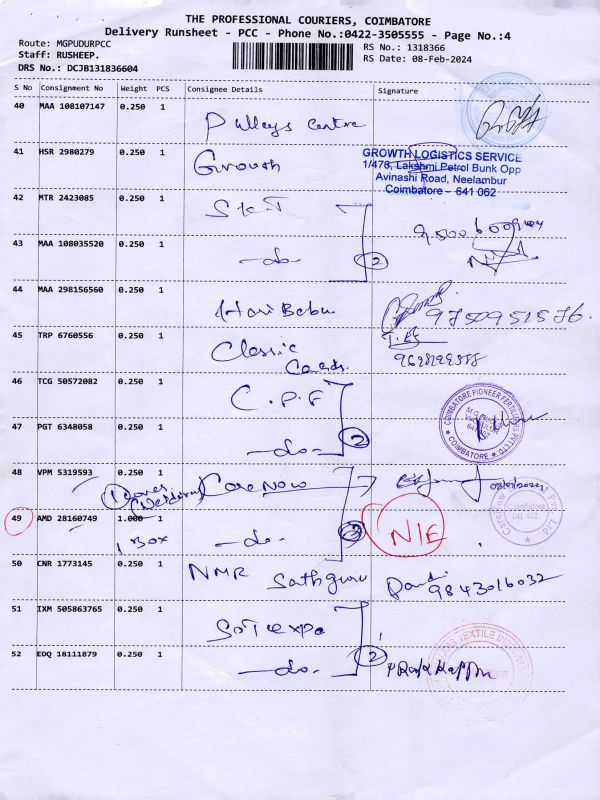 THE PROFESSIONAL COURIERS, COIMBATORE
Delivery Runsheet - PCC - Phone No.:0422-3505555 - Page No.:4
Route: MGPUDURPCC
RS No.: 1318366
Staff: RUSHEEP.
RS Date: 08-Feb-2024
DRS No.: DCJB131836604
S No Consignment No Weight PCS Consignee Details Signature
40 MAA 108107147 0.250 1 Pulleys Centre
41 HSR 2980279 0.250 1 Growth
GROWTH LOGISTICS SERVICE
1/476, Lakshmi Petrol Bunk Opp
Avinashi Road, Neelambur
Coimbatore - 641 062
42 MTR 2423085 0.250 1
43 MAA 108035520 0.250 1 -do- 2
44 MAA 298156560 0.250 1 Hari Babu
9750951576.
45 TRP 6760556 0.250 1 Classic
46 TCG 50572082 0.250 1 C.P.F
COIMBATORE PIONEER FERTILIZERS PVT LTD
47 PGT 6348058 0.250 1 -do- 2
COIMBATORE
48 VPM 5319593 0.250 1 Care Now
49 AMD 28160749 1.000 1 -do-
1 Box
N/E
Carenow
Pvt. Ltd
50 CNR 1773145 0.250 1 NMR Sathguru
9843016032
51 IXM 505863765 0.250 1
TEXTILE
52 EDQ 18111879 0.250 1 -do- 2